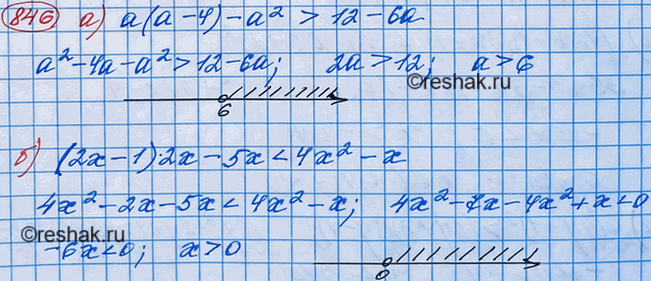 846 а) a(a-4)-a² > 12-6a
a²-4a-a² > 12-6a; 2a > 12; a > 6
©reshak.ru
6
б) (2x-1)·2x-5x < 4x²-x
4x²-2x-5x < 4x²-x; 4x²-7x-4x²+x < 0
©reshak.ru
-6x < 0; x > 0
0